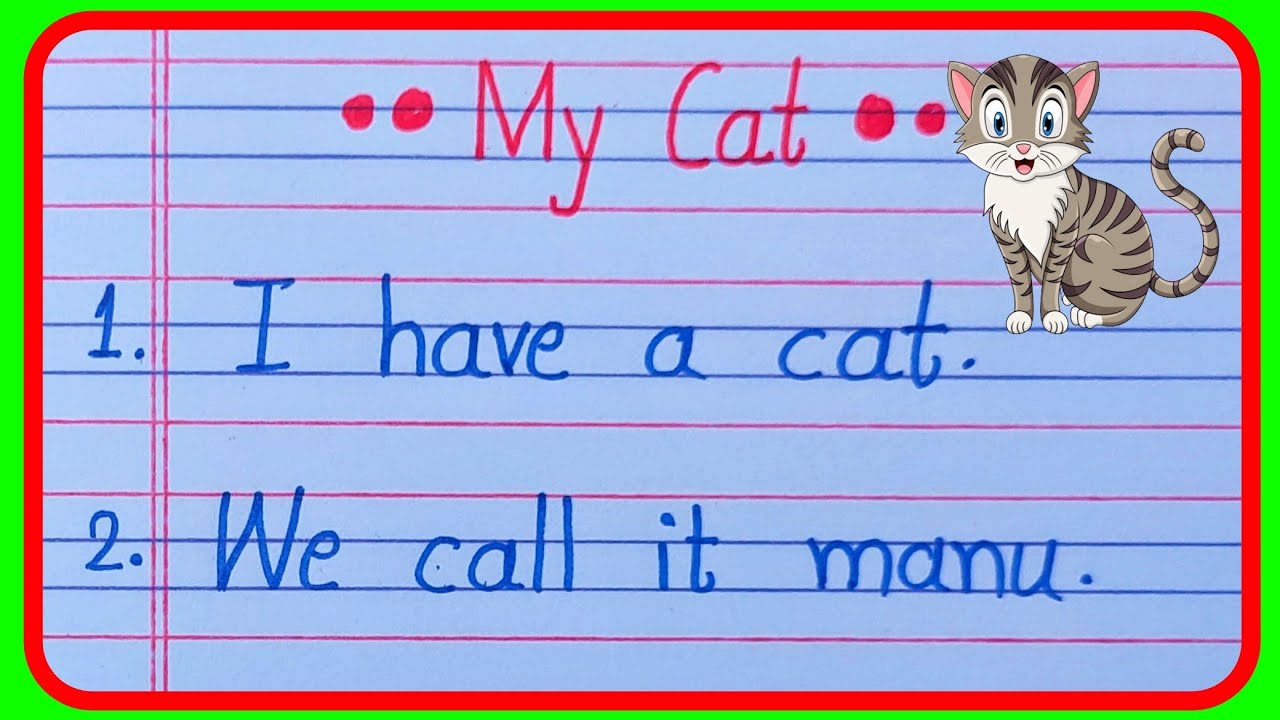 •• My Cat ••
1. I have a cat.
2. We call it manu.